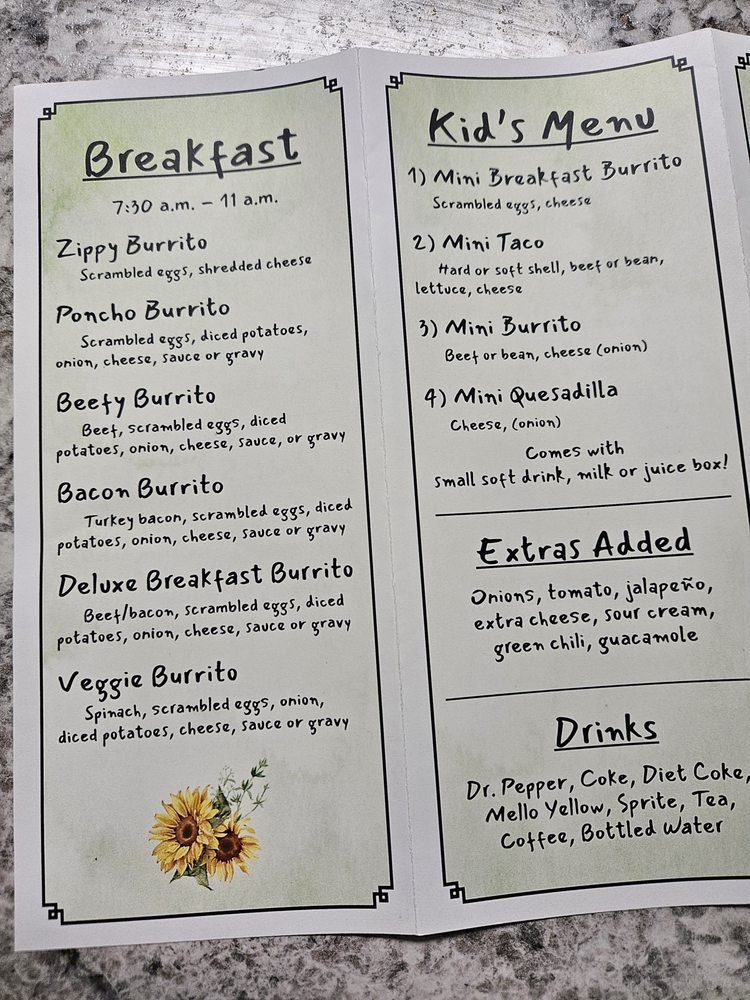 Breakfast
7:30 a.m. – 11 a.m.
Zippy Burrito
Scrambled eggs, shredded cheese
Poncho Burrito
Scrambled eggs, diced potatoes,
onion, cheese, sauce or gravy
Beefy Burrito
Beef, scrambled eggs, diced
potatoes, onion, cheese, sauce, or gravy
Bacon Burrito
Turkey bacon, scrambled eggs, diced
potatoes, onion, cheese, sauce or gravy
Deluxe Breakfast Burrito
Beef/bacon, scrambled eggs, diced
potatoes, onion, cheese, sauce or gravy
Veggie Burrito
Spinach, scrambled eggs, onion,
diced potatoes, cheese, sauce or gravy
Kid's Menu
1) Mini Breakfast Burrito
Scrambled eggs, cheese
2) Mini Taco
Hard or soft shell, beef or bean,
lettuce, cheese
3) Mini Burrito
Beef or bean, cheese (onion)
4) Mini Quesadilla
Cheese, (onion)
Comes with
small soft drink, milk or juice box!
Extras Added
Onions, tomato, jalapeño,
extra cheese, sour cream,
green chili, guacamole
Drinks
Dr. Pepper, Coke, Diet Coke,
Mello Yellow, Sprite, Tea,
Coffee, Bottled Water